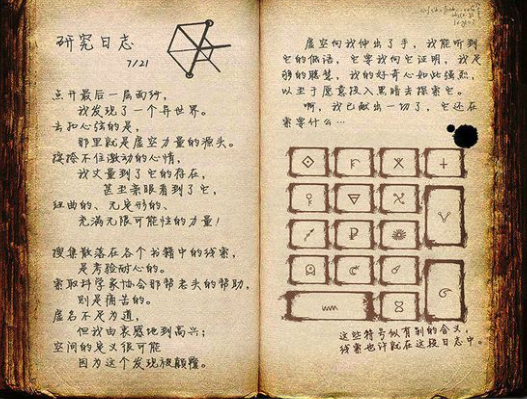 研究日志
7/21
点开最后一扇
我发现了一个异世界。
扣心弦的是,
那里就是虚空力量的源头。
按捺不住激动的心情,
我丈量到了它的存在,
甚至亲眼看到了它,
扭曲的、无定形的、
充满无限可能性的力量!
搜集散落在各个书籍中的线索,
是考验耐心的。
索取科学家协会那帮老头的帮助,
则是痛苦的。
虚名不足为道,
但我由衷感地到高兴;
空间的定义很可能
因为这个发现被颠覆。
虚空向我伸出了手,我能听到
它的低语,它要我向它证明,我足
够的聪慧,我的好奇心如此强烈,
以至于愿意投入黑暗去探索它。
啊,我已献出一切了,它还在
索要什么…
这些符号似有别的含义,
线索也许就在这段日志中。